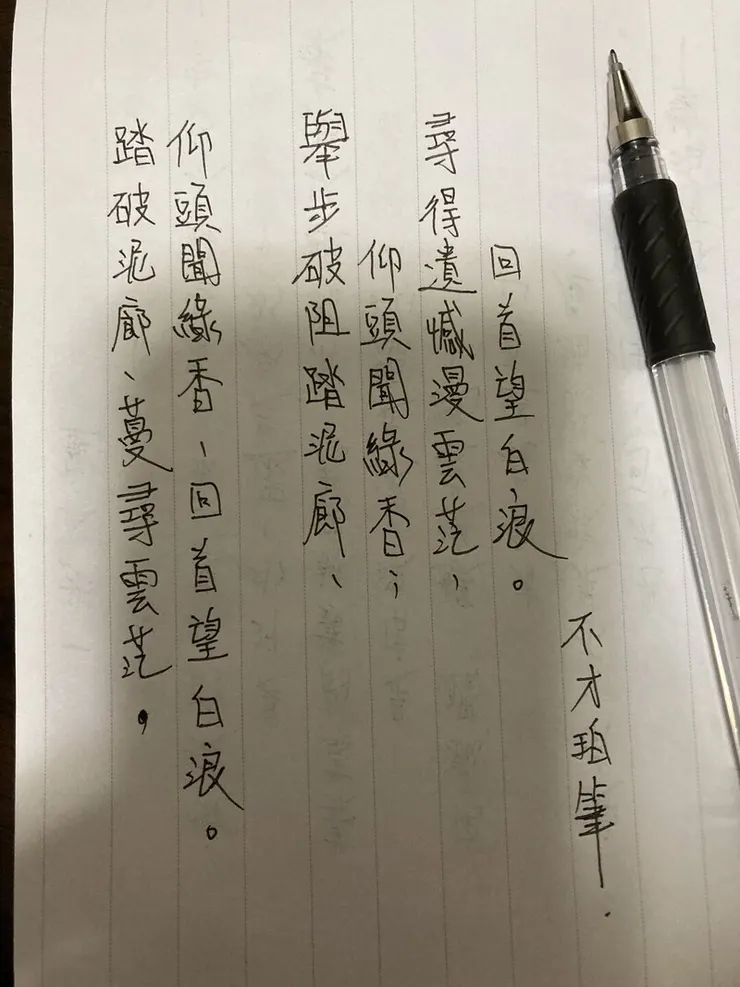 踏破泥廊、蔓尋雲茫，
仰頭聞綠香、回首望白浪。
舉步破阻踏泥廊、
仰頭聞綠香；
尋得遺憾漫雲茫、
回首望白浪。
不才珀筆.